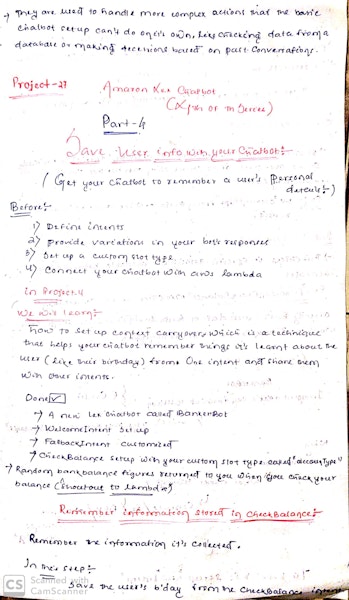 → They are used to handle more complex actions that the basic
chatbot setup can't do on it's own, like checking data from a
database or making decisions based on past conversations.
Project-27 Amazon Lex Chatbot
Part-4
Save User info with your Chatbot:-
(Get your chatbot to remember a user's personal
details:-)
Before:-
1) Define intents
2) provide variation in your bot's responses
3) Set up a custom slot type
4) Connect your chatbot with aws lambda
in Project:4
We will learn:-
How to set up context carryover, which is a technique
that helps your chatbot remember things it's learnt about the
user (like their birthday) from One intent and share them
with other intents.
Done ✓
→ A new lex chatbot called BankerBot
→ WelcomeIntent set up
→ FallbackIntent customized
→ CheckBalance setup with your custom slot type called "accountType"
→ Random bank balance figures returned to you when you check your
balance (shoutout to lambda)
Remember information stored in CheckBalance:-
Remember the information it's collected.
In this step:-
Save the user's b'day from the CheckBalance intent
CS Scanned with
CamScanner